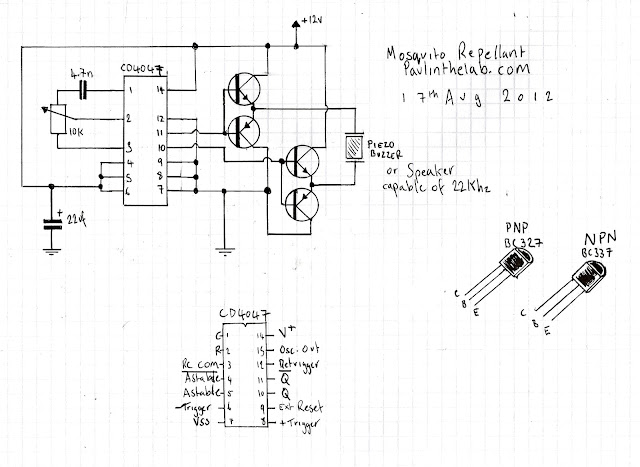 +12V
CD4047
4.7n
1 14
2 12
3 11
10
4 9
5 8
6 7
10K
+
22uf
PIEZO
BUZZER
or Speaker
capable of 22Khz
Mosquito Repellant
Paulinthelab.com
17th Aug 2012
PNP
BC327
C
B
E
NPN
BC337
C
B
E
CD4047
C 1 14 V+
R 2 13 Osc. Out
RC Com 3 12 Retrigger
Astable 4 11 Q
Astable 5 10 Q
-Trigger 6 9 Ext Reset
VSS 7 8 + Trigger